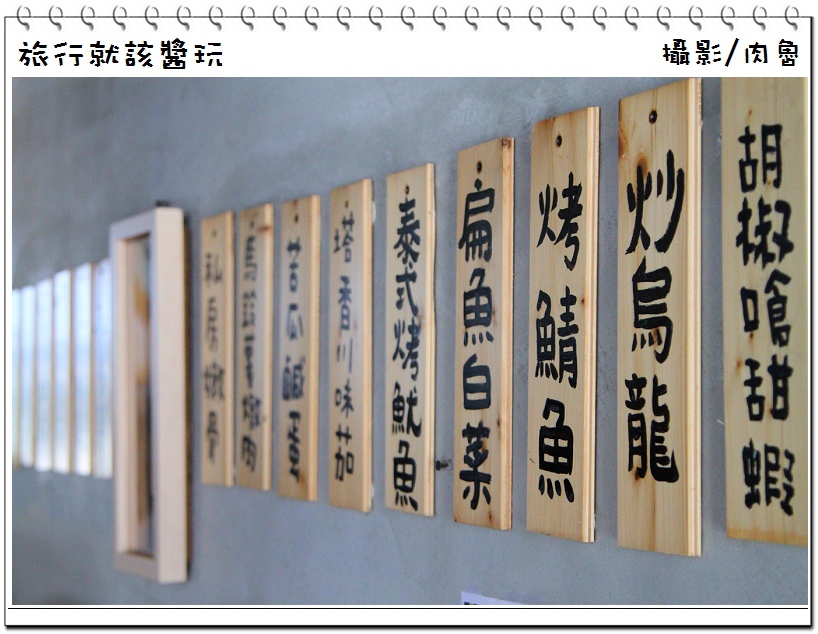 旅行就該醬玩
攝影/肉魯
胡椒嗆甜蝦
炒烏龍
烤鯖魚
扁魚白菜
泰式烤魷魚
塔香川味茄
苦瓜鹹蛋
私房嫩骨